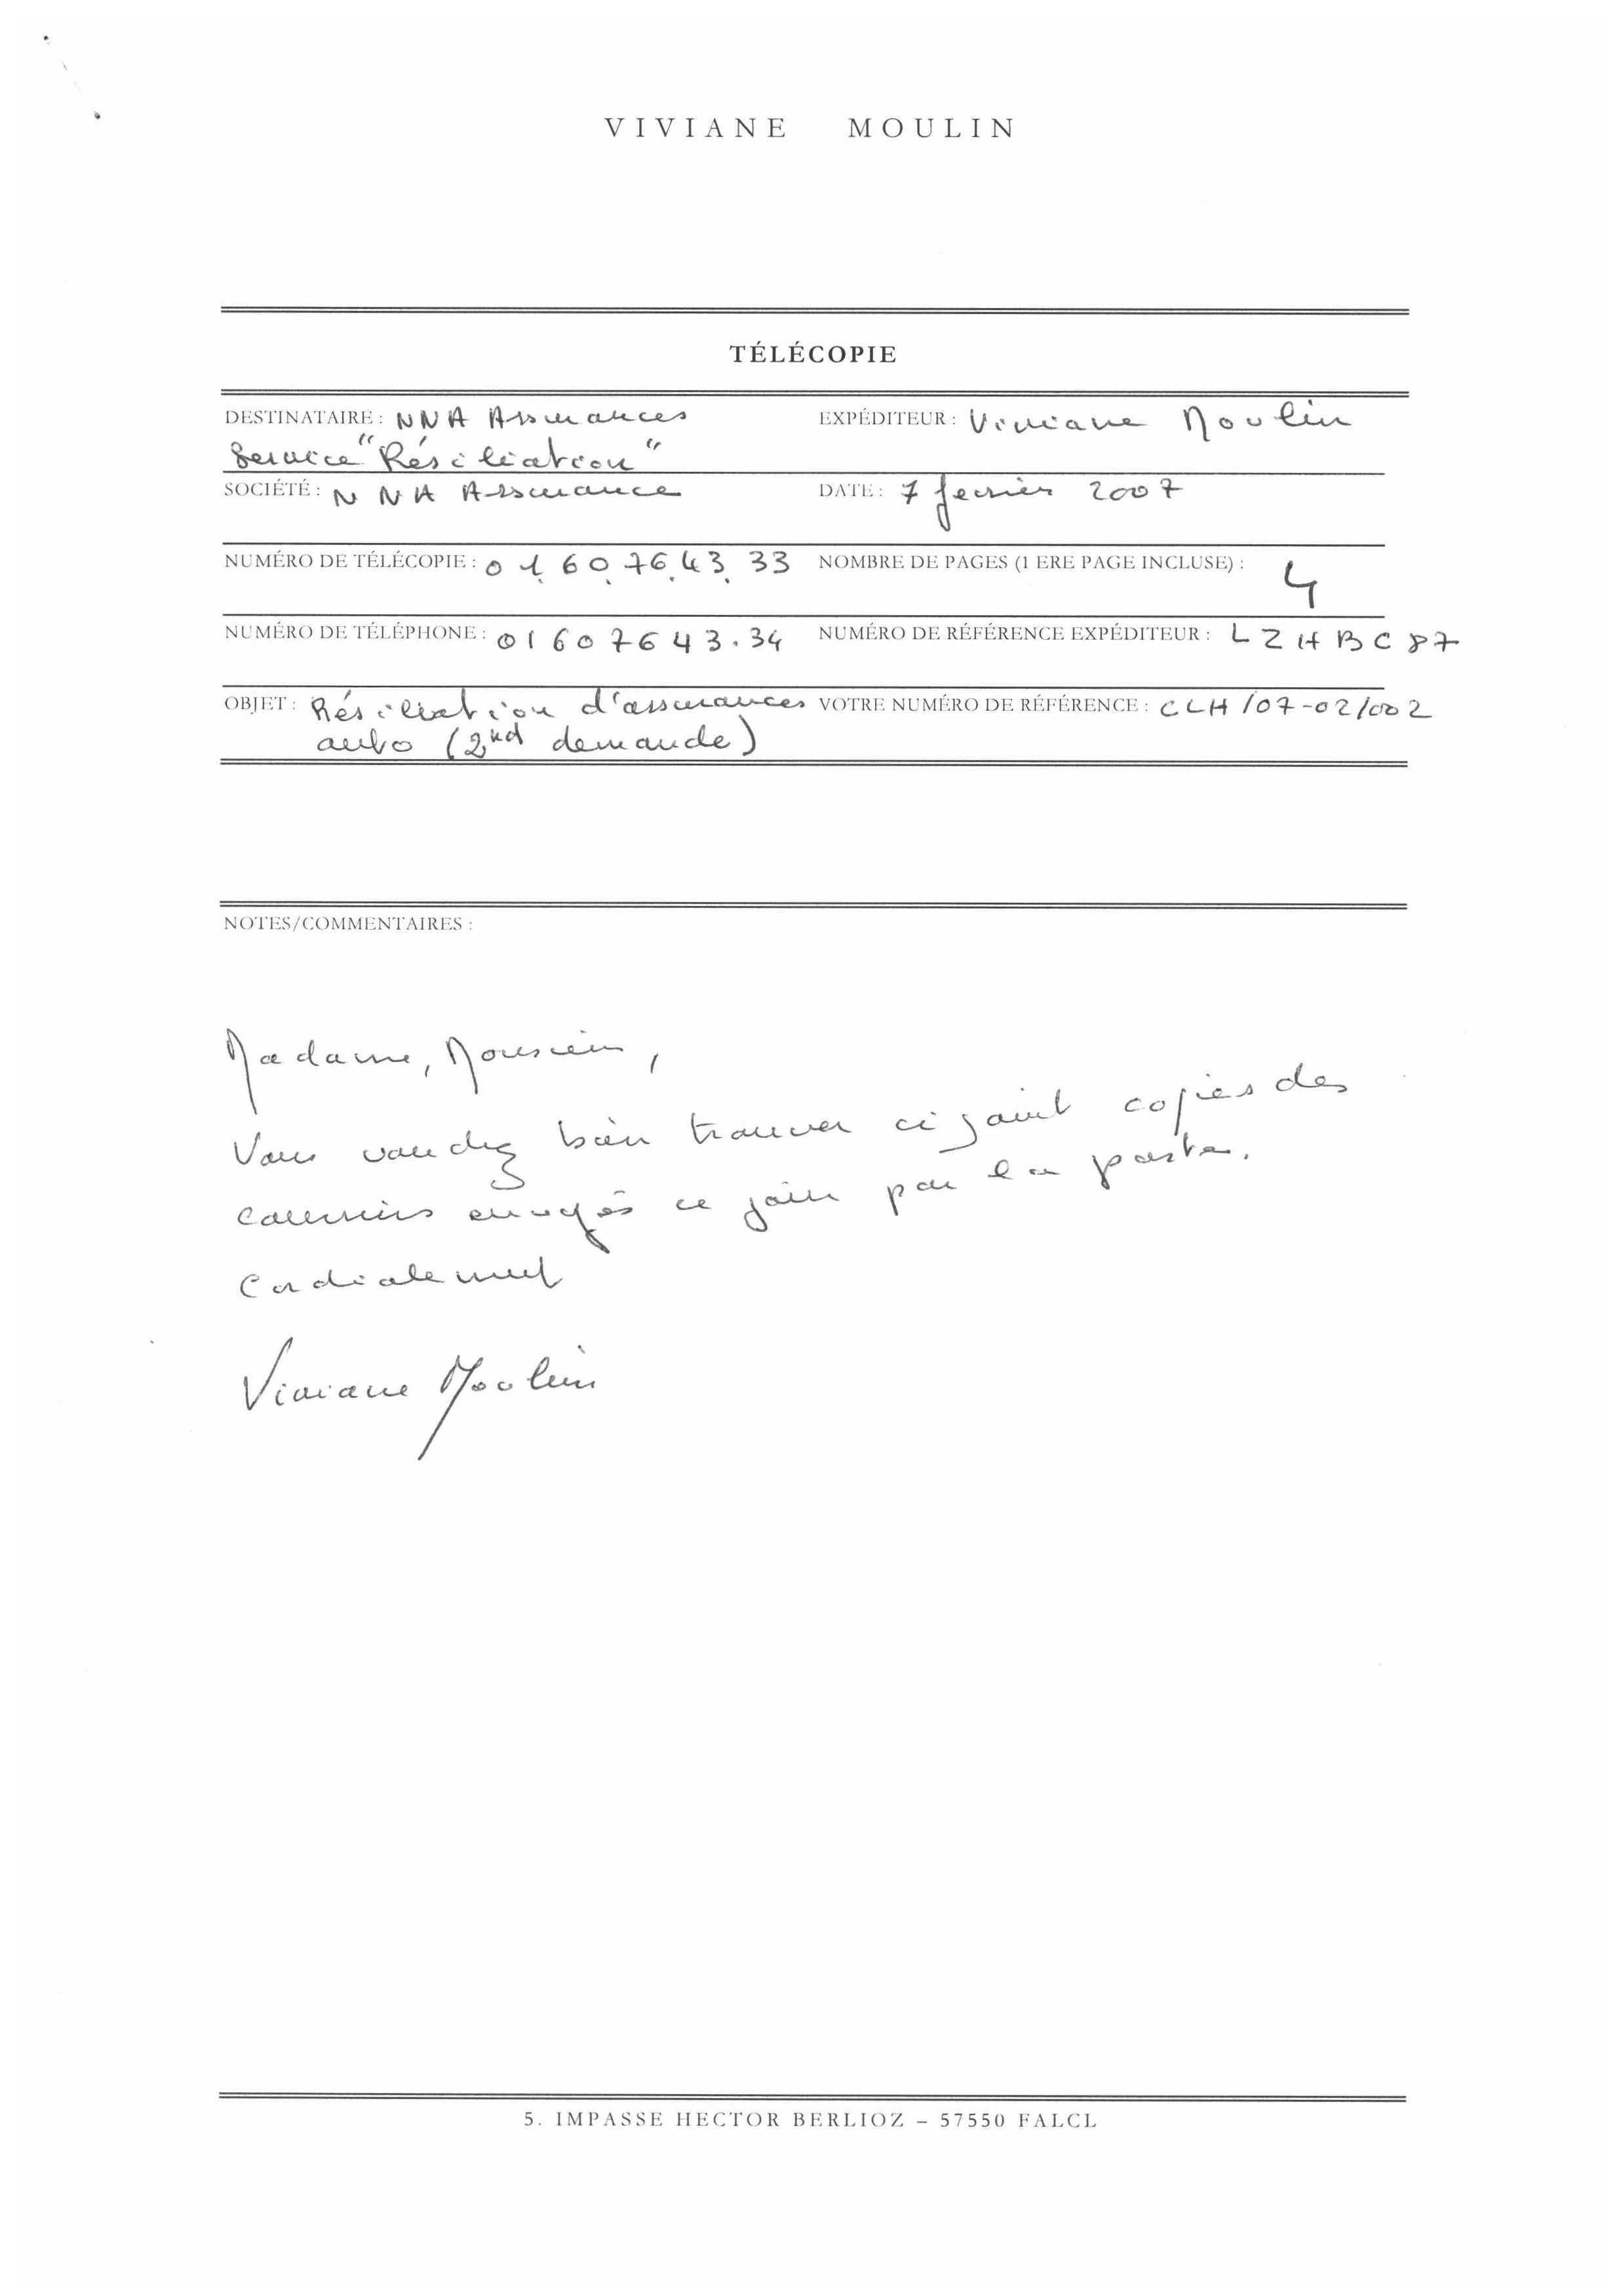 VIVIANE MOULIN
TÉLÉCOPIE
DESTINATAIRE : NNA Assurances
Service "Résiliation"
EXPÉDITEUR : Viviane Moulin
SOCIÉTÉ : NNA Assurance
DATE : 7 fevrier 2007
NUMÉRO DE TÉLÉCOPIE : 01.60.76.43.33
NOMBRE DE PAGES (1 ERE PAGE INCLUSE) : 4
NUMÉRO DE TÉLÉPHONE : 01607643.34
NUMÉRO DE RÉFÉRENCE EXPÉDITEUR : LZHBC87
OBJET : Résiliation d'assurances
auto (2nd demande)
VOTRE NUMÉRO DE RÉFÉRENCE : CLH/07-02/002
NOTES/COMMENTAIRES :
Madame, Monsieur,
Vous voudrez bien trouver ci joint copies des
courriers envoyés ce jour par la poste.
Cordialement
Viviane Moulin
5. IMPASSE HECTOR BERLIOZ – 57550 FALCL